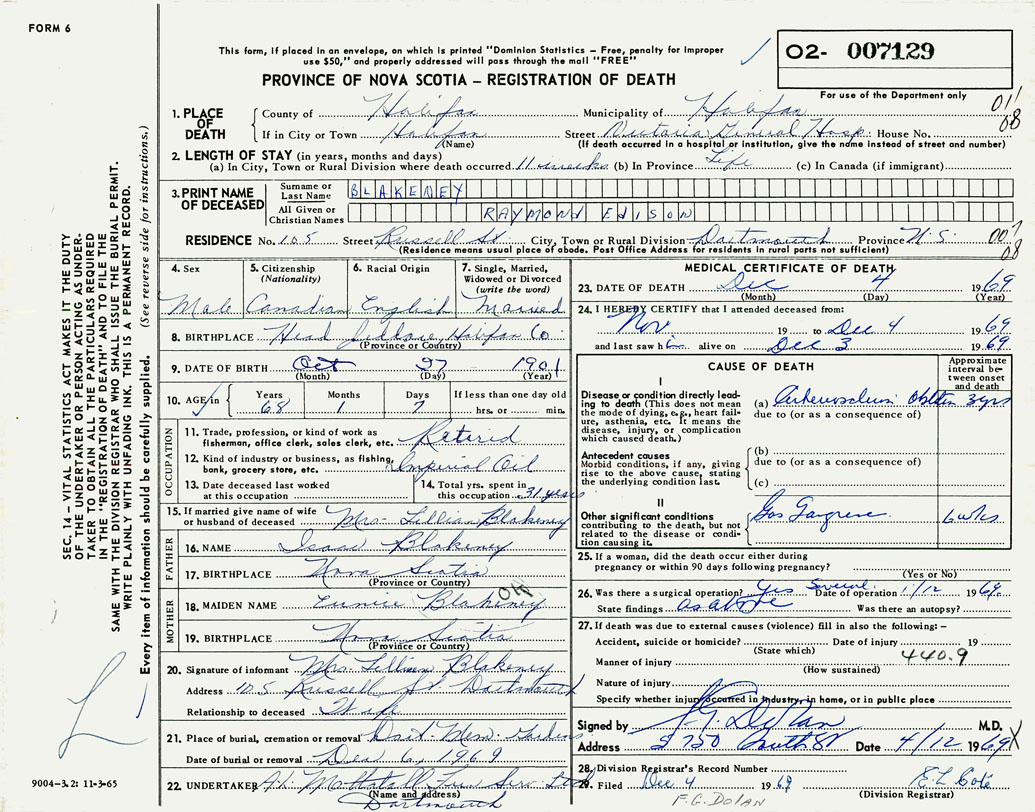 FORM 6
This form, if placed in an envelope, on which is printed "Dominion Statistics – Free, penalty for improper
use $50," and properly addressed will pass through the mail "FREE"
PROVINCE OF NOVA SCOTIA – REGISTRATION OF DEATH
02- 007129
For use of the Department only
011
08
1. PLACE OF DEATH
County of Halifax Municipality of Halifax
If in City or Town Halifax Street Victoria General Hosp. House No.
(Name) (If death occurred in a hospital or institution, give the name instead of street and number)
2. LENGTH OF STAY (in years, months and days)
(a) In City, Town or Rural Division where death occurred 11 weeks (b) In Province Life (c) In Canada (if immigrant)
3. PRINT NAME OF DECEASED
Surname or Last Name BLAKENEY
All Given or Christian Names RAYMOND EDISON
RESIDENCE No. 105 Street Russell St. City, Town or Rural Division Dartmouth Province N.S.
(Residence means usual place of abode. Post Office Address for residents in rural parts not sufficient)
007
08
4. Sex Male
5. Citizenship (Nationality) Canadian
6. Racial Origin English
7. Single, Married, Widowed or Divorced (write the word) Married
8. BIRTHPLACE Head Jeddore Halifax Co
(Province or Country)
9. DATE OF BIRTH Oct 27 1901
(Month) (Day) (Year)
10. AGE in Years 68 Months 1 Days 7 If less than one day old
hrs. or min.
OCCUPATION
11. Trade, profession, or kind of work as fisherman, office clerk, sales clerk, etc. Retired
12. Kind of industry or business, as fishing, bank, grocery store, etc. Imperial Oil
13. Date deceased last worked at this occupation
14. Total yrs. spent in this occupation 31 years
15. If married give name of wife or husband of deceased Mrs. Lillian Blakeney
FATHER
16. NAME Isaac Blakeney
17. BIRTHPLACE Nova Scotia
(Province or Country)
MOTHER
18. MAIDEN NAME Eunice Blakeney OK
19. BIRTHPLACE Nova Scotia
(Province or Country)
20. Signature of informant Mrs. Lillian Blakeney
Address 105 Russell St. Dartmouth
Relationship to deceased Wife
21. Place of burial, cremation or removal Dart. Mem. Gardens
Date of burial or removal Dec 6, 1969
22. UNDERTAKER
(Name and address) Dartmouth
MEDICAL CERTIFICATE OF DEATH
23. DATE OF DEATH Dec 4 1969
(Month) (Day) (Year)
24. I HEREBY CERTIFY that I attended deceased from:
Nov 19 to Dec 4 1969
and last saw him alive on Dec 3 1969
CAUSE OF DEATH
Approximate interval between onset and death
I
Disease or condition directly leading to death (This does not mean the mode of dying, e.g., heart failure, asthenia, etc. It means the disease, injury, or complication which caused death.)
(a) 3 yrs
due to (or as a consequence of)
Antecedent causes
Morbid conditions, if any, giving rise to the above cause, stating the underlying condition last.
(b)
due to (or as a consequence of)
(c)
II
Other significant conditions contributing to the death, but not related to the disease or condition causing it.
Gas Gangrene 6 wks
25. If a woman, did the death occur either during
pregnancy or within 90 days following pregnancy?
(Yes or No)
26. Was there a surgical operation? Yes Several Date of operation 1/12 1969
State findings as above Was there an autopsy?
27. If death was due to external causes (violence) fill in also the following: –
Accident, suicide or homicide? Date of injury 19
(State which) 440.9
Manner of injury
(How sustained)
Nature of injury
Specify whether injury occurred in industry, in home, or in public place
Signed by F.G. Dolan M.D.
Address 5750 South St Date 4/12 1969
28. Division Registrar's Record Number
29. Filed Dec 4 1969 E.L. Coté
(Division Registrar)
F.G. DOLAN
SEC. 14 – VITAL STATISTICS ACT MAKES IT THE DUTY
OF THE UNDERTAKER OR PERSON ACTING AS UNDER-
TAKER TO OBTAIN ALL THE PARTICULARS REQUIRED
IN THE "REGISTRATION OF DEATH" AND TO FILE THE
SAME WITH THE DIVISION REGISTRAR WHO SHALL ISSUE THE BURIAL PERMIT.
WRITE PLAINLY WITH UNFADING INK. THIS IS A PERMANENT RECORD.
Every item of information should be carefully supplied. (See reverse side for instructions.)
9004–3.2: 11-3-65